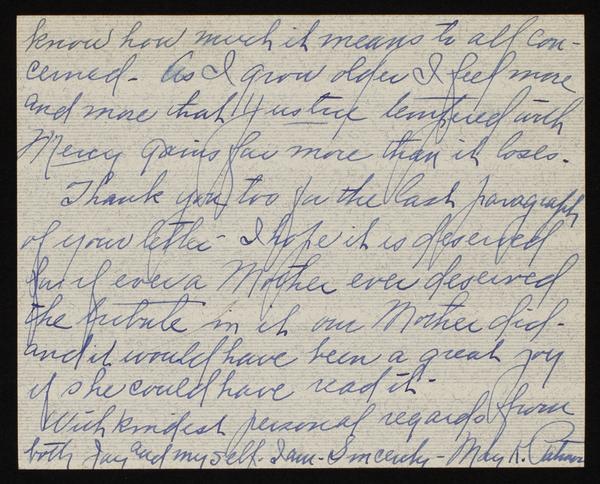 know how much it means to all con-
cerned - As I grow older I feel more
and more that Justice tempered with
Mercy gains far more than it loses.
Thank you too for the last paragraph
of your letter - I hope it is deserved
for if ever a Mother ever deserved
the tribute in it our Mother did -
and it would have been a great joy
if she could have read it -
With kindest personal regards from
both Jay and myself. I am - Sincerely - May K.